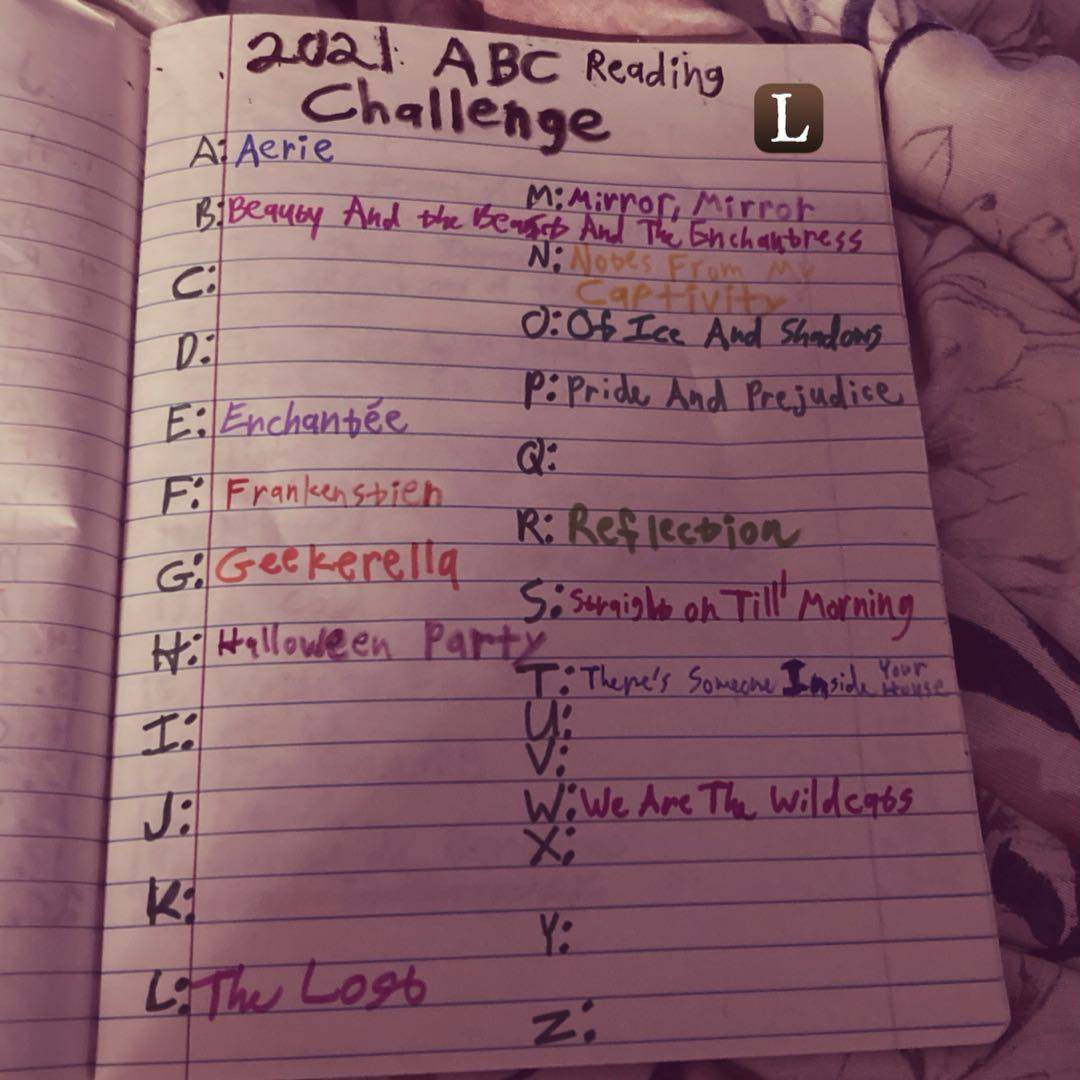 2021 ABC Reading
Challenge
L
A: Aerie
B: Beauty And the Beast And The Enchantress
C:
D:
E: Enchantée
F: Frankenstien
G: Geekerella
H: Halloween Party
I:
J:
K:
L: The Lost
M: Mirror, Mirror
N: Notes From My
Captivity
O: Of Ice And Shadows
P: Pride And Prejudice
Q:
R: Reflection
S: Straight on Till' Morning
T: There's Someone Inside Your
House
U:
V:
W: We Are The Wildcats
X:
Y:
Z: